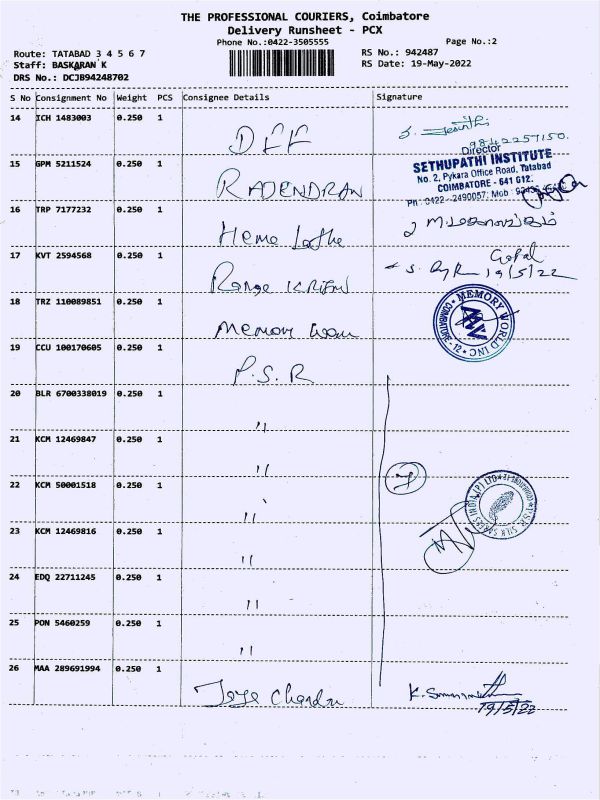 THE PROFESSIONAL COURIERS, Coimbatore
Delivery Runsheet - PCX
Phone No.:0422-3505555
Page No.:2
Route: TATABAD 3 4 5 6 7
RS No.: 942487
Staff: BASKARAN K
RS Date: 19-May-2022
DRS No.: DCJB94248702
S No Consignment No Weight PCS Consignee Details Signature
14 ICH 1483003 0.250 1
9842257150
Director
SETHUPATHI INSTITUTE
No. 2, Pykara Office Road, Tatabad
COIMBATORE - 641 012.
Ph : 0422 - 2490057, Mob :
15 GPM 5211524 0.250 1
RAJENDRAN
16 TRP 7177232 0.250 1
Heme Lathe
17 KVT 2594568 0.250 1
Gopal
19/5/22
18 TRZ 110089851 0.250 1
Memory
MEMORY WORLD INC
COIMBATORE - 12
MW
19 CCU 100170605 0.250 1
P.S.R
20 BLR 6700338019 0.250 1
"
21 KCM 12469847 0.250 1
"
22 KCM 50001518 0.250 1
"
23 KCM 12469816 0.250 1
"
24 EDQ 22711245 0.250 1
"
25 PON 5460259 0.250 1
"
26 MAA 289691994 0.250 1
Jeye Chandra
19/5/22